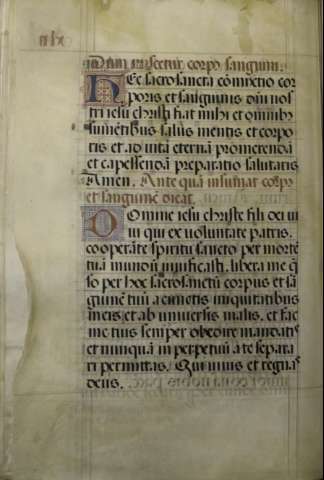 Dum miscetur corpꝰ sanguini.
Hec sacrosancta cōmixtio cor
poris et sanguinis dn̄i nos
tri iesu christi fiat mihi et omnibꝰ
sumētibus salus mentis et corpo
ris et ad vitā eternā promerendā
et capessendā preparatio salutaris
Amen. Ante quā insumat corpꝰ
et sanguinē dicat.
Domine iesu christe fili dei vi
ui qui ex voluntate patris.
cooperāte spiritu sancto per mortē
tuā mundū viuificasti, libera me q̄
so per hoc sacrosanctū corpus et sā
guinē tuū a cunctis iniquitatibus
meis et ab uniuersis malis. et fac
me tuis semper obedire mandatis
et nunquā in perpetuū a te separa
ri permittas. Qui viuis et regnas
deus.